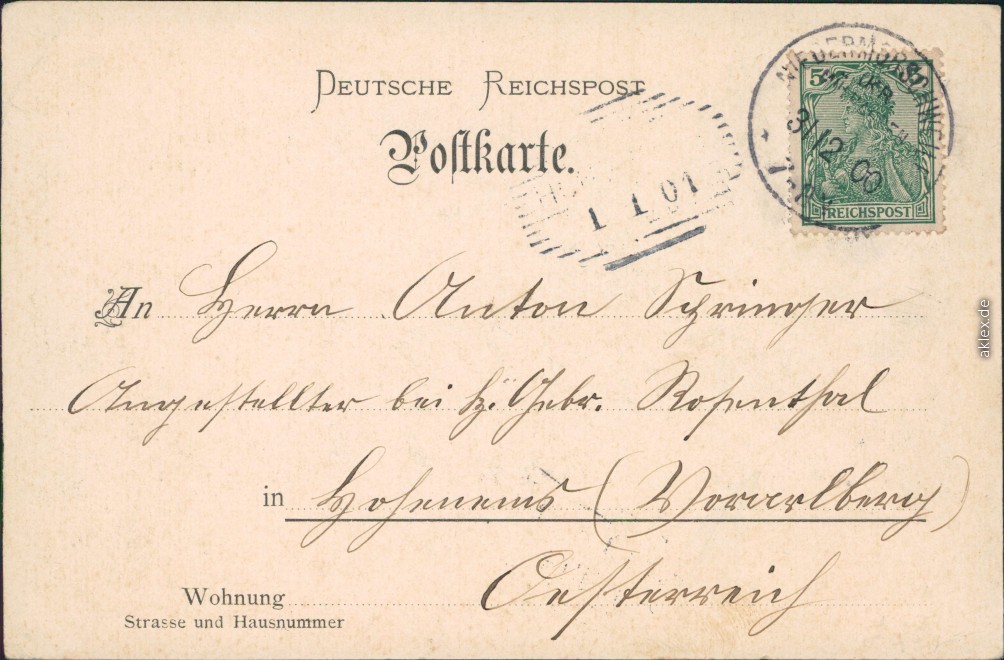 DEUTSCHE REICHSPOST
Postkarte.
5
REICHSPOST
31/12 00
1 1 01
An Herrn Anton Springer
Angestellter bei H. Gebr. Rosenthal
in Hohenems (Vorarlberg)
Oesterreich
Wohnung
Strasse und Hausnummer
aklex.de